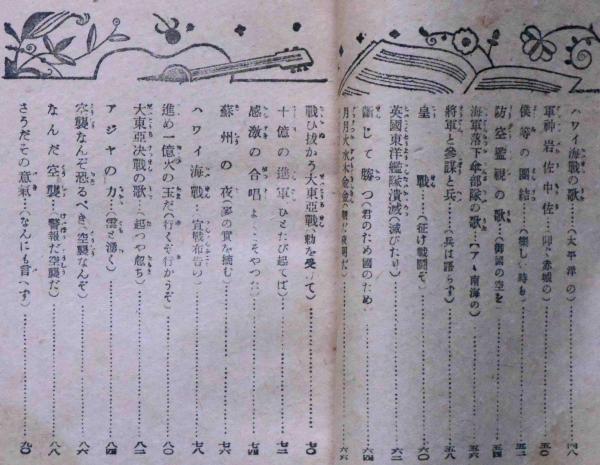 ハワイ海戰の歌…(太平洋の)…四八
軍神岩佐中佐…(赤城の)…五〇
僕等の團結…(樂しい時も)…五二
防空監視の歌…(御國の空を)…五四
海軍落下傘部隊の歌…(アヽ南海の)…五六
將軍と參謀と兵…(兵は語らず)…五八
皇戰…(征け戰鬪ぞ)…六〇
英國東洋艦隊潰滅(滅びたり)…六二
斷じて勝つ(君のため國のため)…六四
月月火水木金金…六六
戰ひ拔かう大東亞戰(勅を受けて)…七〇
十億の進軍(ひとたび起てば)…七二
感激の合唱…七四
蘇州の夜(夢の實を摘む)…七六
ハワイ海戰…(宣戰布告の)…七八
進め一億火の玉だ(行くぞ行かうぞ)…八〇
大東亞決戰の歌…(起つや忽ち)…八二
アジヤの力…(雲と湧く)…八四
空襲なんぞ恐るべき(空襲なんぞ)…八六
なんだ空襲…(警報だ空襲だ)…八八
さうだその意氣…(なんにも言へず)…九〇